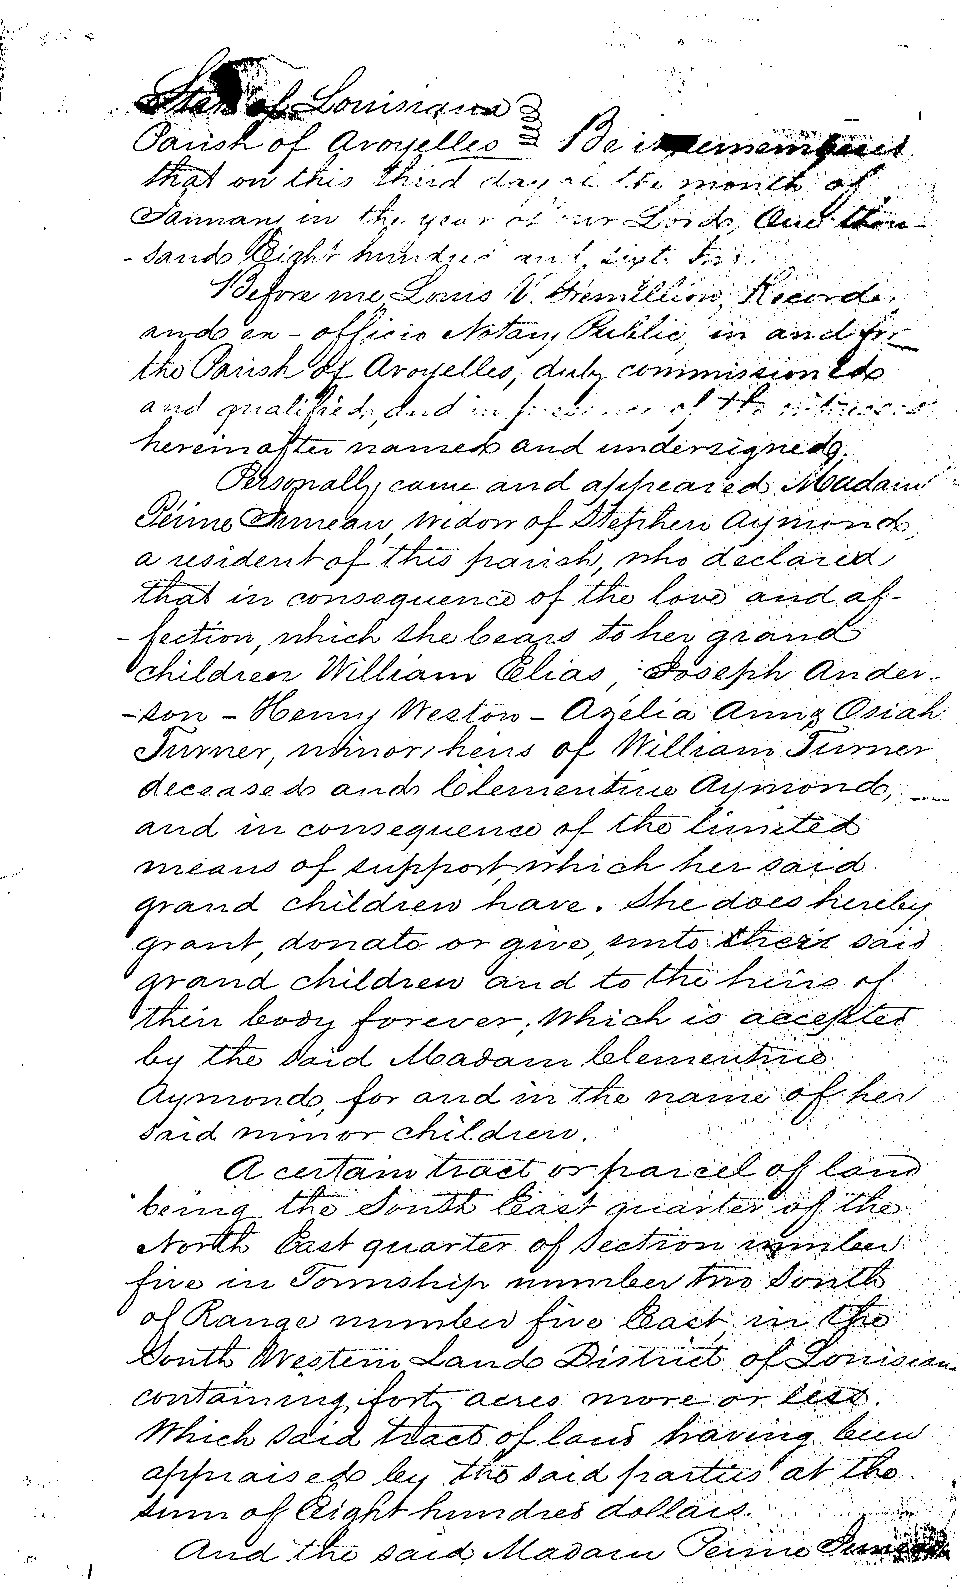 State of Louisiana
Parish of Avoyelles Be it remembered
that on this third day of the month of
January in the year of our Lord, One thou-
-sand Eight hundred and sixty
Before me, Louis V. Gremillion, Recorder,
and ex-officio Notary Public, in and for
the Parish of Avoyelles, duly commissioned
and qualified, and in presence of the witnesses
hereinafter named and undersigned.
Personally came and appeared Madam
Juneau, widow of Stephen Aymond,
a resident of this parish, who declared
that in consequence of the love and af-
-fection, which she bears to her grand
children William Elias, Joseph Ander-
-son - Henry Weston - Azelia Ann & Osiah
Turner, minor heirs of William Turner
deceased and Clementine Aymond,
and in consequence of the limited
means of support, which her said
grand children have. She does hereby
grant, donate or give, unto their said
grand children and to the heirs of
their body forever; Which is accepted
by the said Madam Clementine
Aymond, for and in the name of her
said minor children.
A certain tract or parcel of land
being the South East quarter of the
North East quarter of Section number
five in Township number two South
of Range number five East, in the
South Western Land District of Louisiana
containing forty acres more or less.
Which said tract of land having been
appraised by the said parties at the
sum of Eight hundred dollars.
And the said Madam Juneau